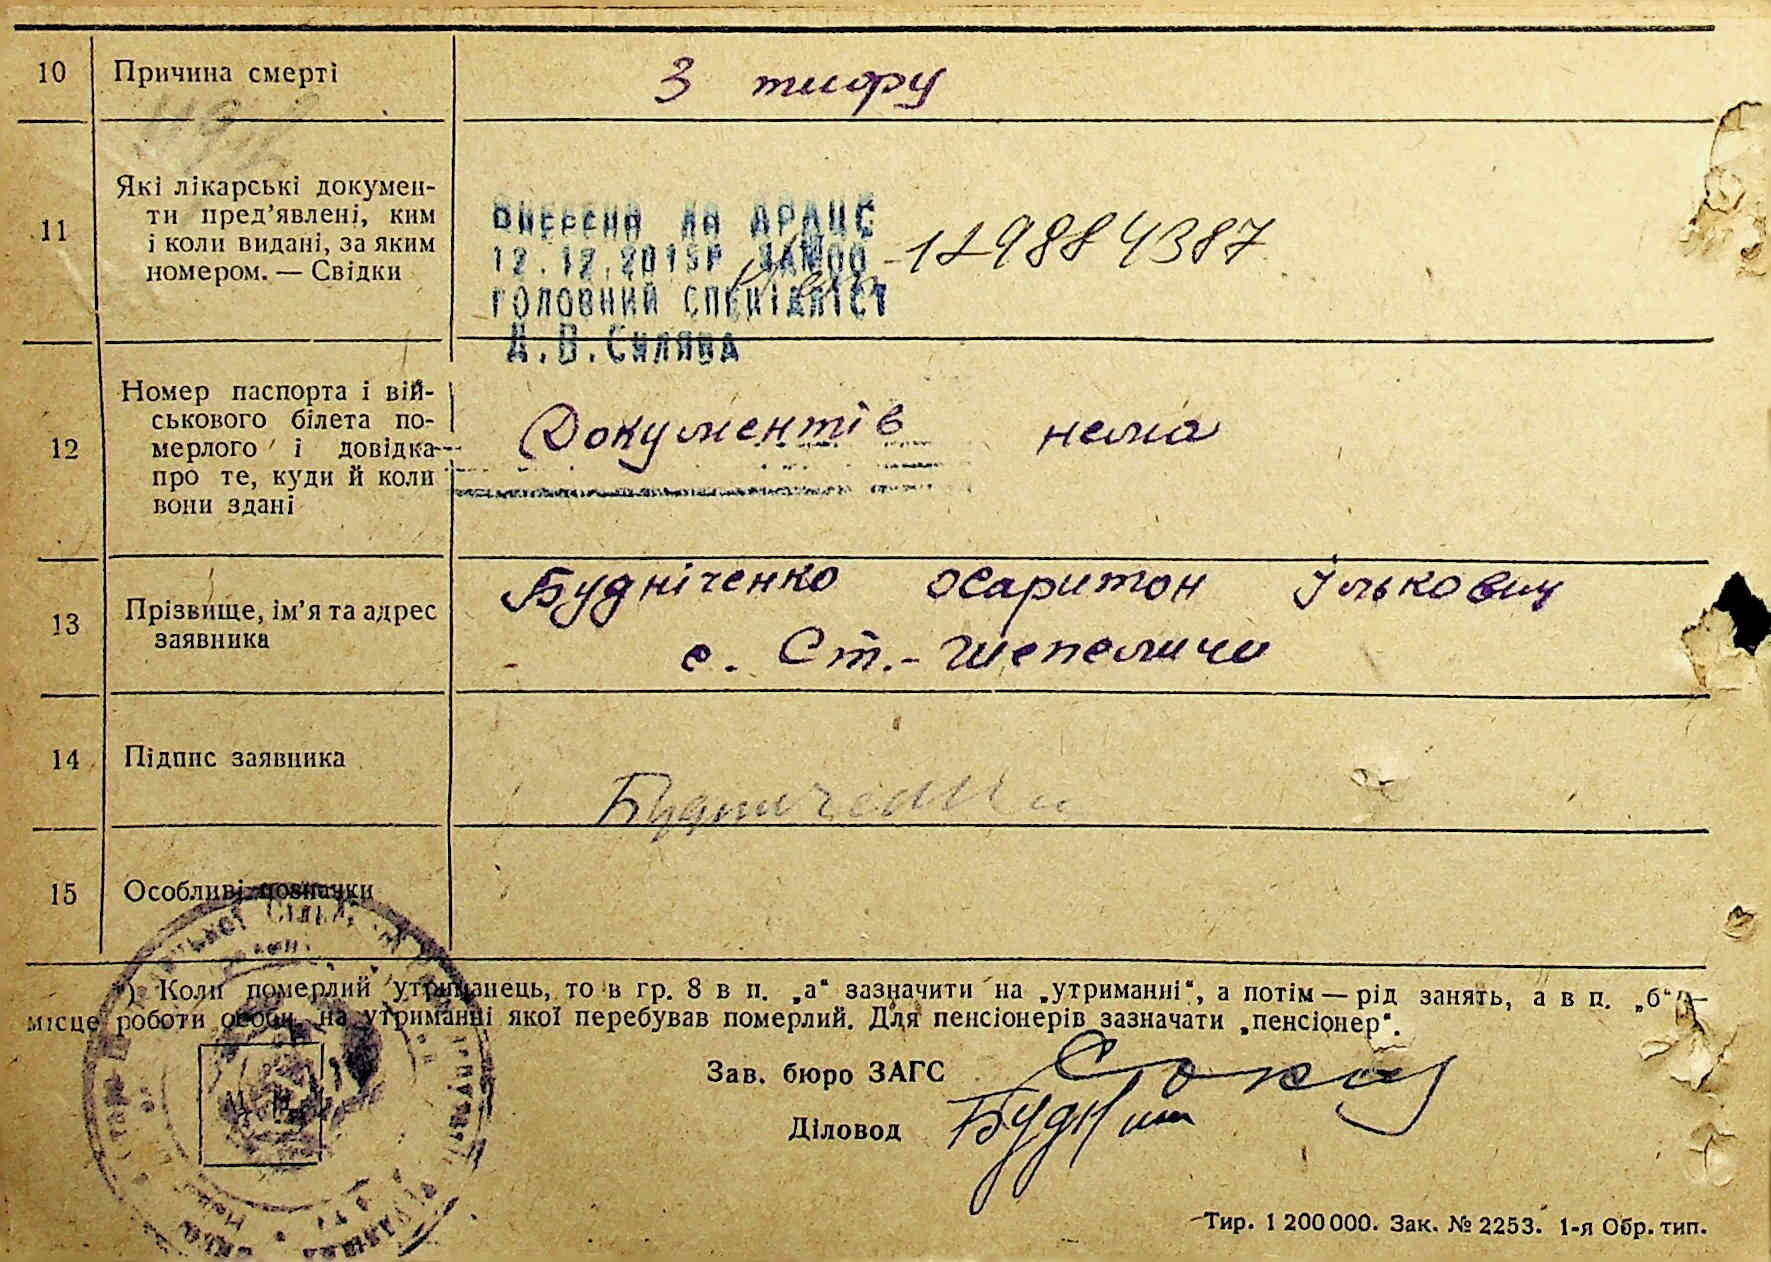 10 Причина смерті З тифу
11 Які лікарські докумен-
ти пред’явлені, ким
і коли видані, за яким
номером. — Свідки
ВНЕСЕНА ДО ДРАЦС
12.12.2015Р ЗА №00 -129884387
ГОЛОВНИЙ СПЕЦІАЛІСТ
12 Номер паспорта і вій-
ськового білета по-
мерлого і довідка
про те, куди й коли
вони здані
Документів нема
13 Прізвище, ім’я та адрес
заявника
Будніченко Харитон Ількович
с. Ст.-Шепеличи
14 Підпис заявника
15 Особливі позначки
*) Коли померлий утриманець, то в гр. 8 в п. „а“ зазначити на „утриманні“, а потім — рід занять, а в п. „б“ —
місце роботи особи, на утриманні якої перебував померлий. Для пенсіонерів зазначати „пенсіонер“.
Зав. бюро ЗАГС
Діловод
Тир. 1 200 000. Зак. № 2253. 1-я Обр. тип.